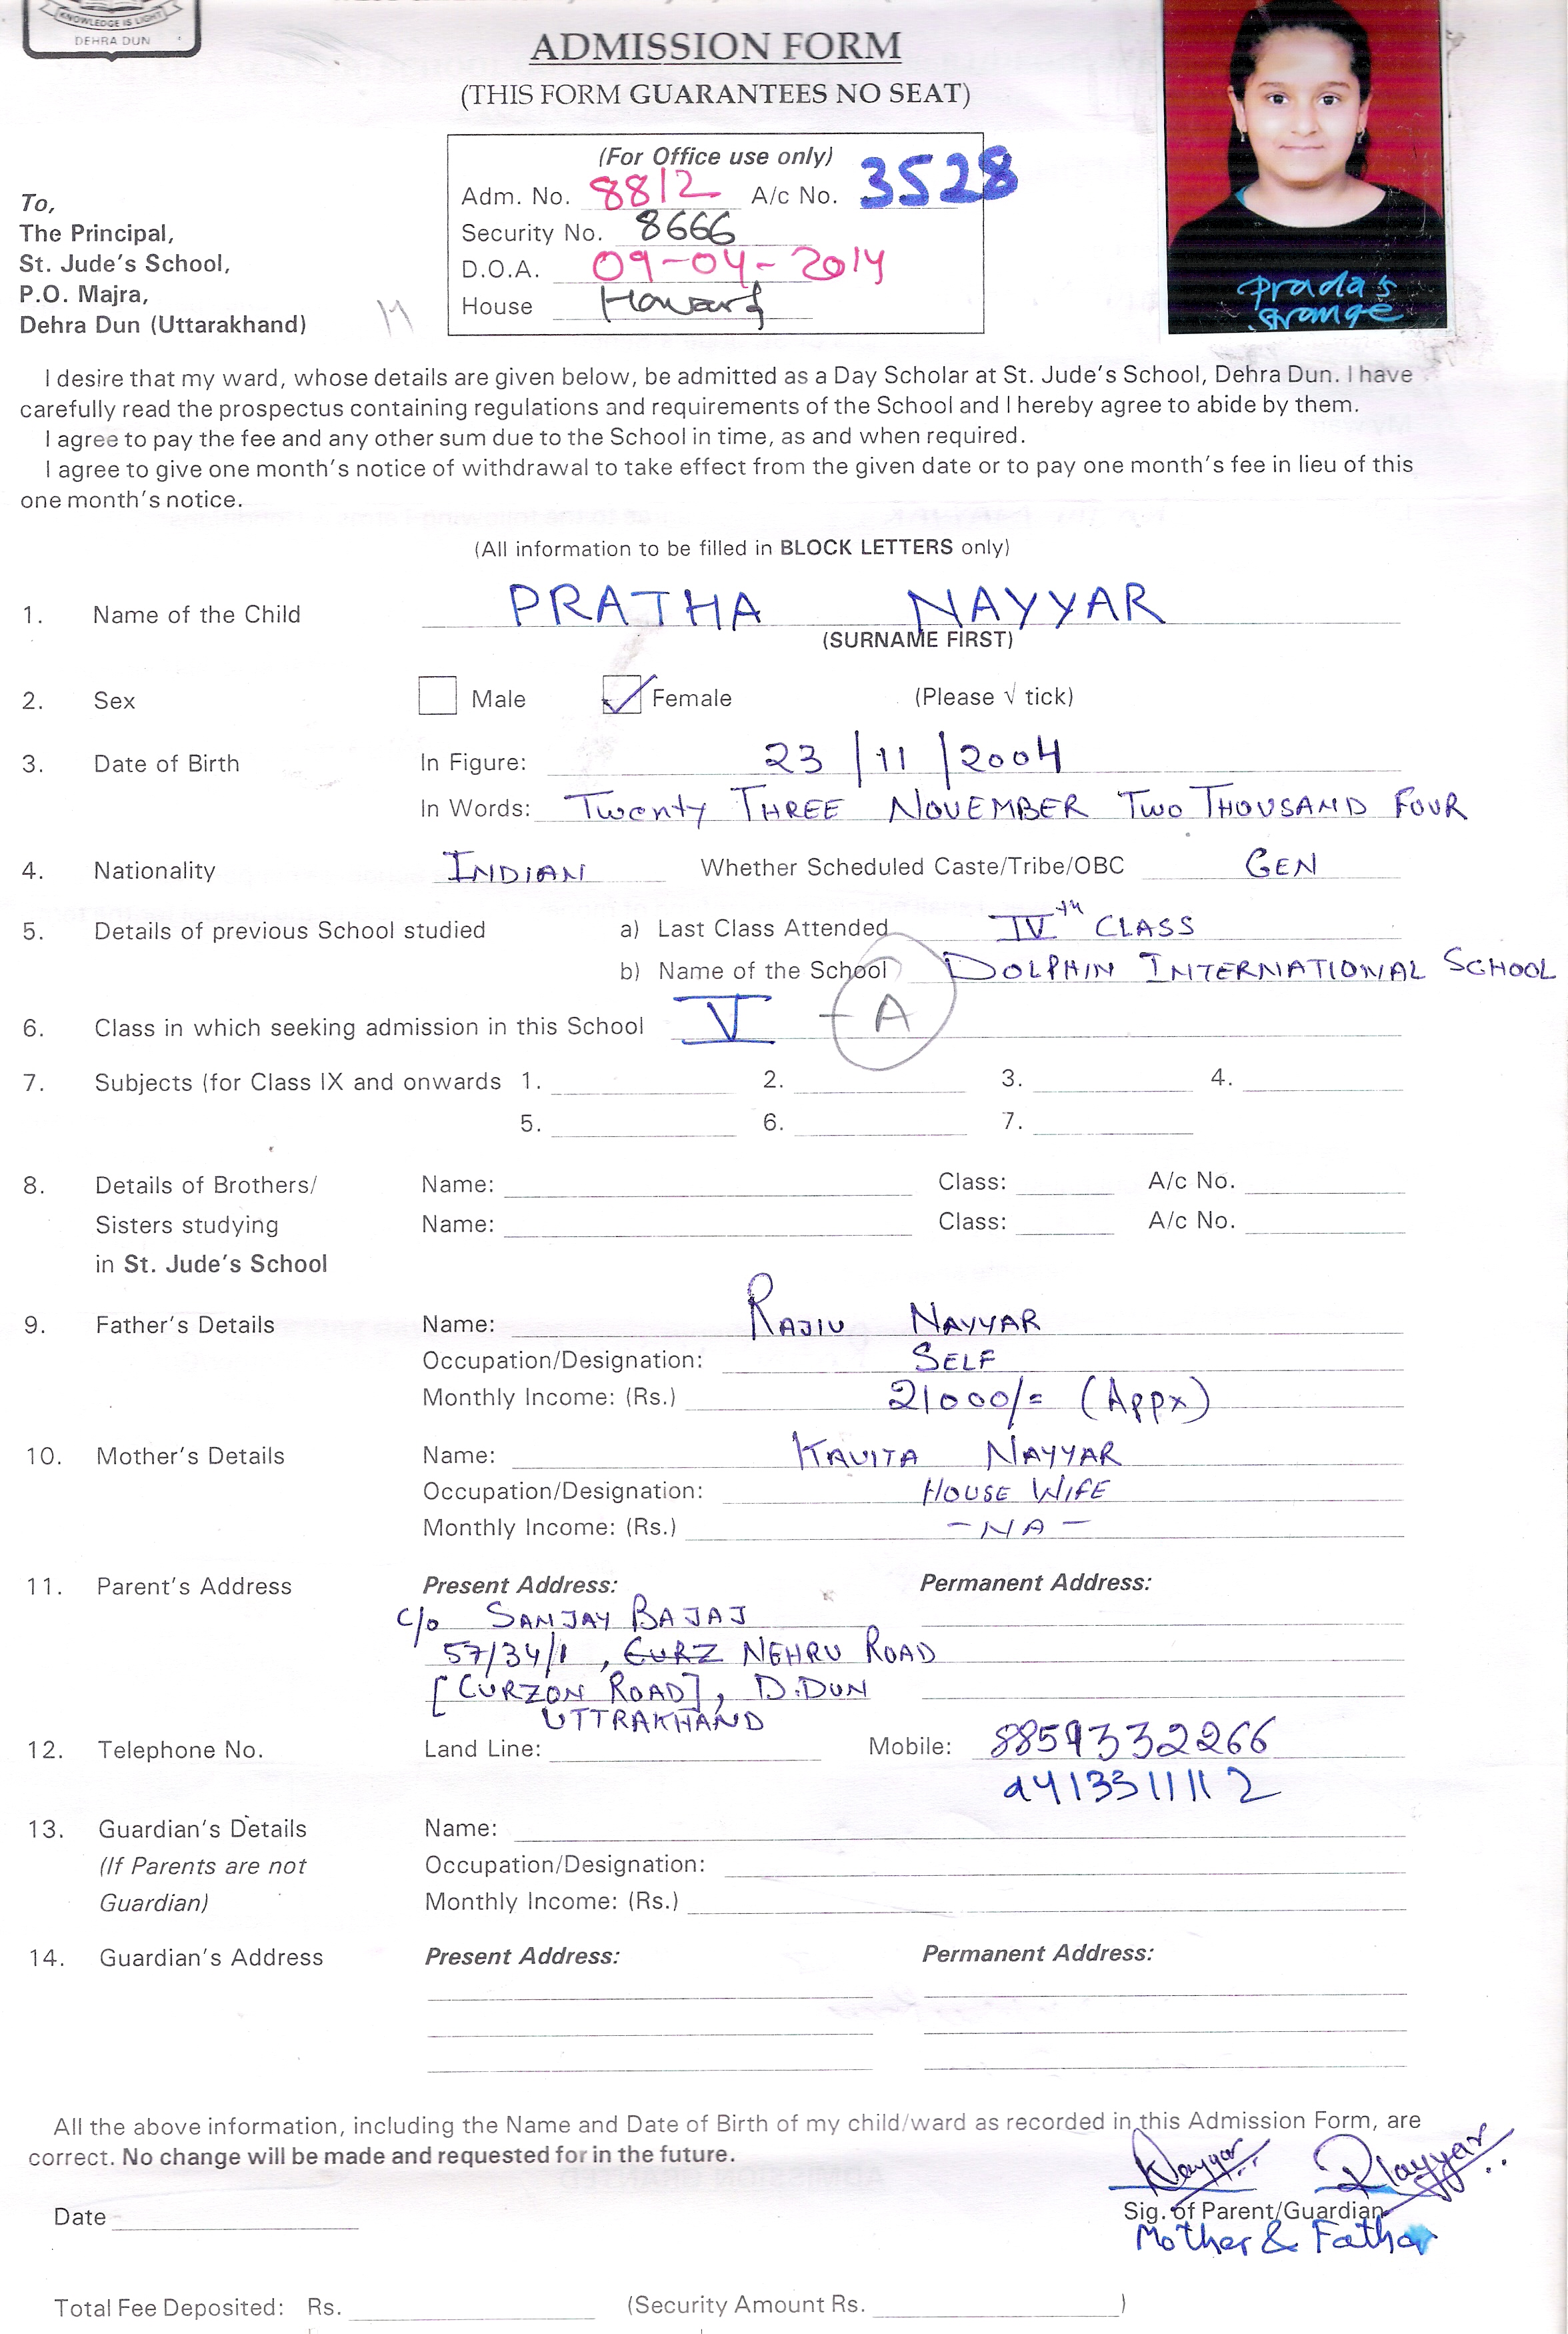 KNOWLEDGE IS LIGHT
DEHRA DUN
ADMISSION FORM
(THIS FORM GUARANTEES NO SEAT)
(For Office use only)
Adm. No. 8812 A/c No. 3528
Security No. 8666
D.O.A. 09-04-2014
House Howard
To,
The Principal,
St. Jude's School,
P.O. Majra,
Dehra Dun (Uttarakhand)
prada's
I desire that my ward, whose details are given below, be admitted as a Day Scholar at St. Jude's School, Dehra Dun. I have
carefully read the prospectus containing regulations and requirements of the School and I hereby agree to abide by them.
I agree to pay the fee and any other sum due to the School in time, as and when required.
I agree to give one month's notice of withdrawal to take effect from the given date or to pay one month's fee in lieu of this
one month's notice.
(All information to be filled in BLOCK LETTERS only)
1. Name of the Child PRATHA NAYYAR
(SURNAME FIRST)
2. Sex Male Female (Please √ tick)
3. Date of Birth In Figure: 23/11/2004
In Words: Twenty THREE NOVEMBER TWO THOUSAND FOUR
4. Nationality INDIAN Whether Scheduled Caste/Tribe/OBC GEN
5. Details of previous School studied a) Last Class Attended IVth CLASS
b) Name of the School DOLPHIN INTERNATIONAL SCHOOL
6. Class in which seeking admission in this School V - A
7. Subjects (for Class IX and onwards 1. 2. 3. 4.
5. 6. 7.
8. Details of Brothers/ Name: Class: A/c No.
Sisters studying Name: Class: A/c No.
in St. Jude's School
9. Father's Details Name: RAJIV NAYYAR
Occupation/Designation: SELF
Monthly Income: (Rs.) 21000/= (Appx)
10. Mother's Details Name: KAVITA NAYYAR
Occupation/Designation: HOUSE WIFE
Monthly Income: (Rs.) - NA -
11. Parent's Address Present Address: Permanent Address:
C/o SANJAY BAJAJ
57/34/1, CURZ NEHRU ROAD
[CURZON ROAD], D.DUN
UTTRAKHAND
12. Telephone No. Land Line: Mobile: 8859332266
9413311112
13. Guardian's Details Name:
(If Parents are not Occupation/Designation:
Guardian) Monthly Income: (Rs.)
14. Guardian's Address Present Address: Permanent Address:
All the above information, including the Name and Date of Birth of my child/ward as recorded in this Admission Form, are
correct. No change will be made and requested for in the future.
KNayyar RNayyar
Date Sig. of Parent/Guardian
Mother & Father
Total Fee Deposited: Rs. (Security Amount Rs. )